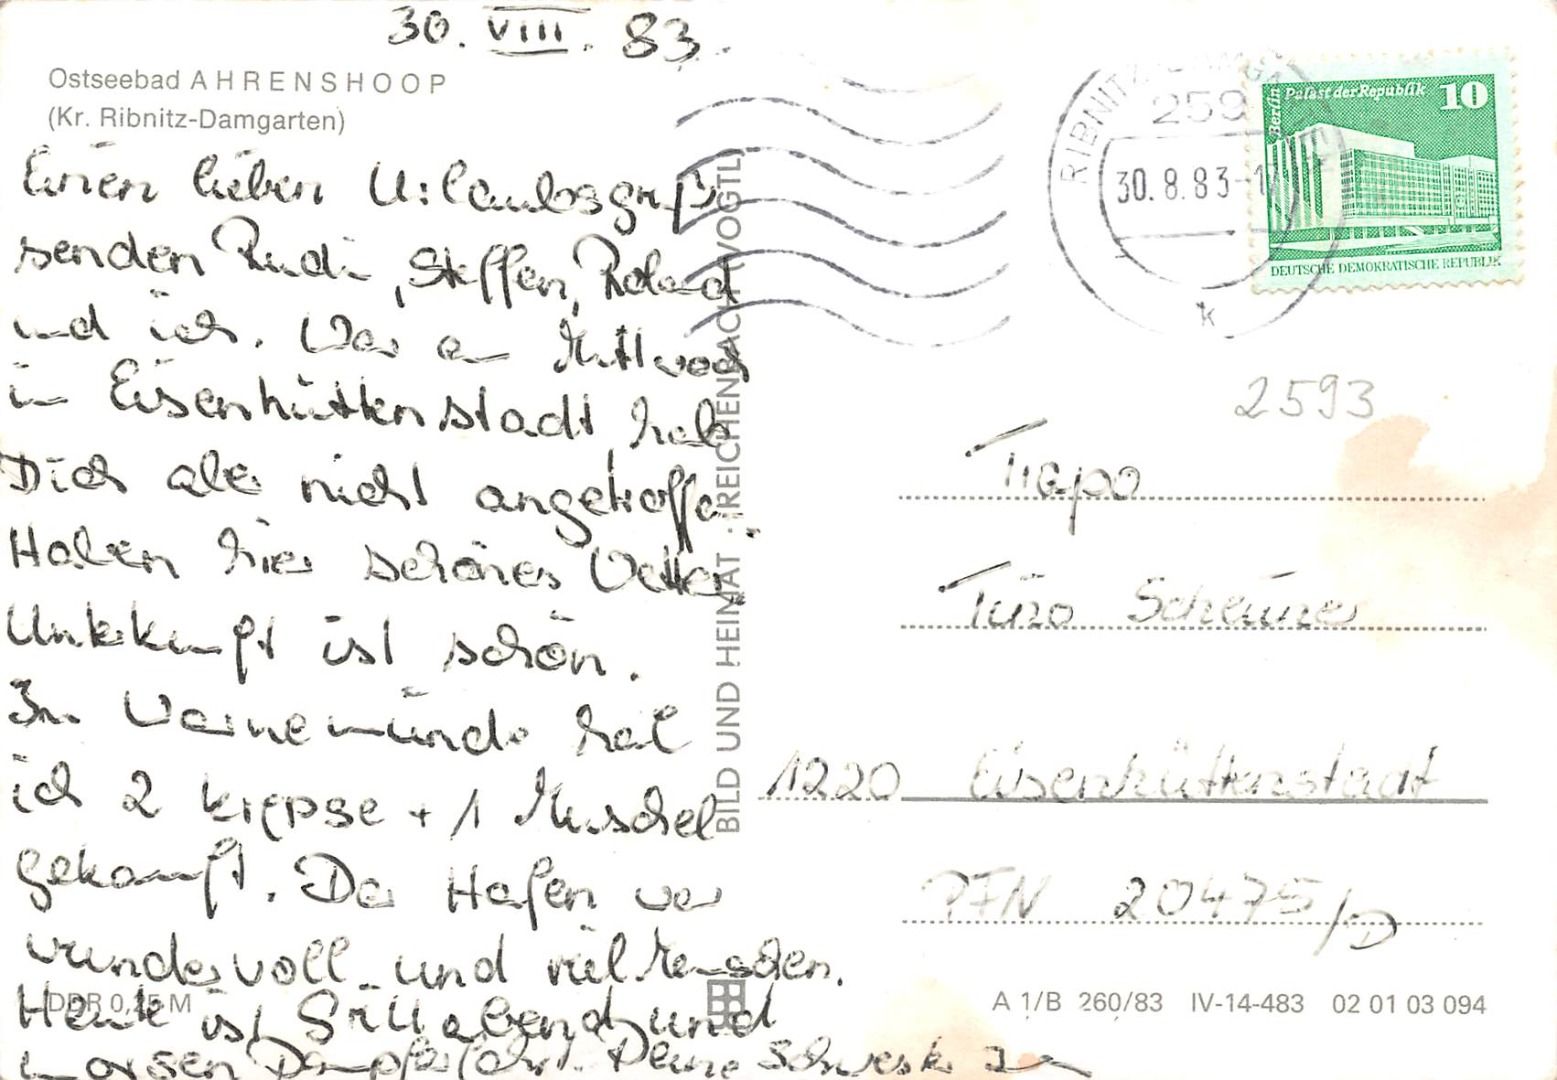 30. VIII. 83.
Ostseebad AHRENSHOOP
(Kr. Ribnitz-Damgarten)
Einen lieben Urlaubsgruß
senden Rudi, Steffen, Roland
und ich. War am Mittwoch
in Eisenhüttenstadt hab
Dich aber nicht angetroffen.
Haben hier schönes Wetter
Unterkunft ist schön.
In Warnemünde hab
ich 2 Krepse + 1 Muschel
gekauft. Der Hafen war
wundervoll und viel Menschen.
Heute ist Grillabend und
morgen Dampferfahrt. Deine Schwester
DDR 0,25 M
BILD UND HEIMAT REICHENBACH (VOGTL
RIBNITZ-DAMGARTEN
259
30.8.83-1
k
Berlin Palast der Republik 10
DEUTSCHE DEMOKRATISCHE REPUBLIK
2593
Tino Scheuner
1220 Eisenhüttenstadt
PFN 20475/D
A 1/B 260/83 IV-14-483 02 01 03 094